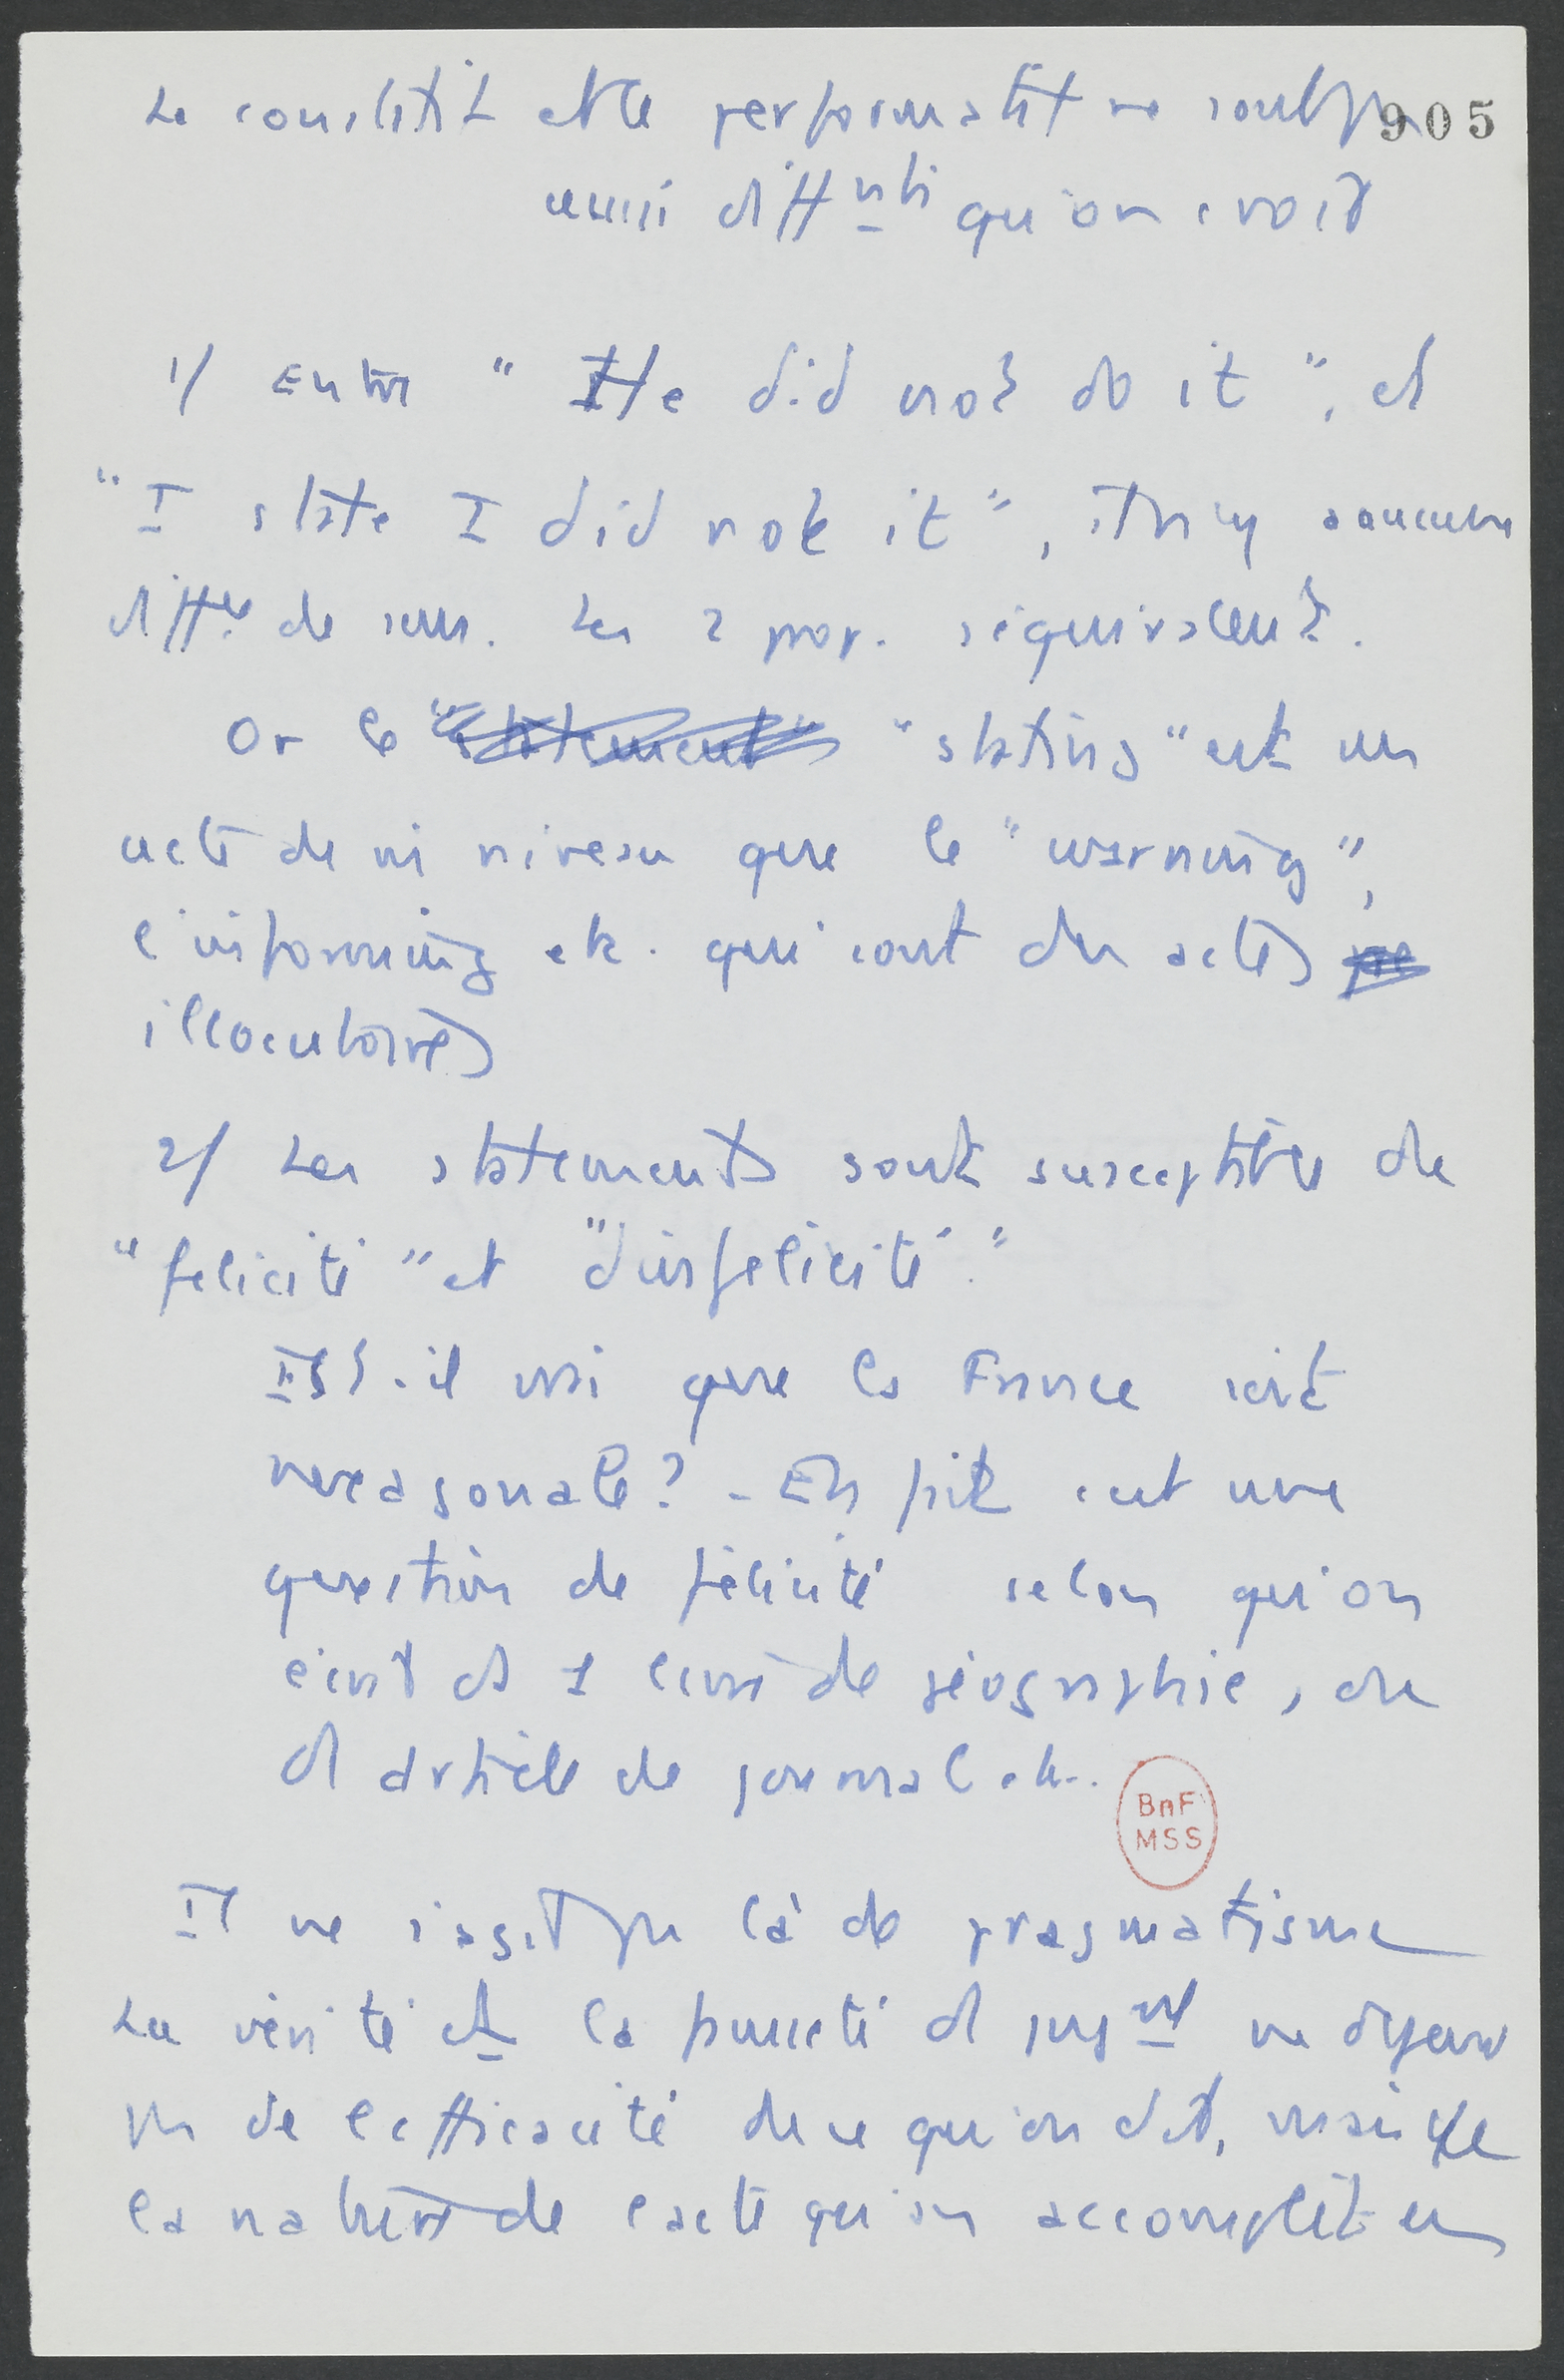 Le constatif et le performatif ne sont pas
905
aussi différents qu'on croit
1/ Entre "He did not do it", et
"I state I did not it", il n'y a aucune
diffce de sens. Les 2 prop. s'équivalent.
Or le "statement" "stating" est un
acte de m niveau que le "warning",
l'informing etc. qui sont des actes
illocutoires
2/ Les statements sont susceptibles de
"félicité" et "d'infélicité".
Est-il vrai que la France soit
hexagonale? - En fait c'est une
question de félicité selon qu'on
écrit ds 1 livre de géographie, ou
ds article de journal etc..
BnF
MSS
Il ne s'agit pas là de pragmatisme
La vérité et la fausseté d jugmt ne dépend
pas de l'efficacité de ce qu'on dit, mais de
la nature de l'acte qu'on accomplit en